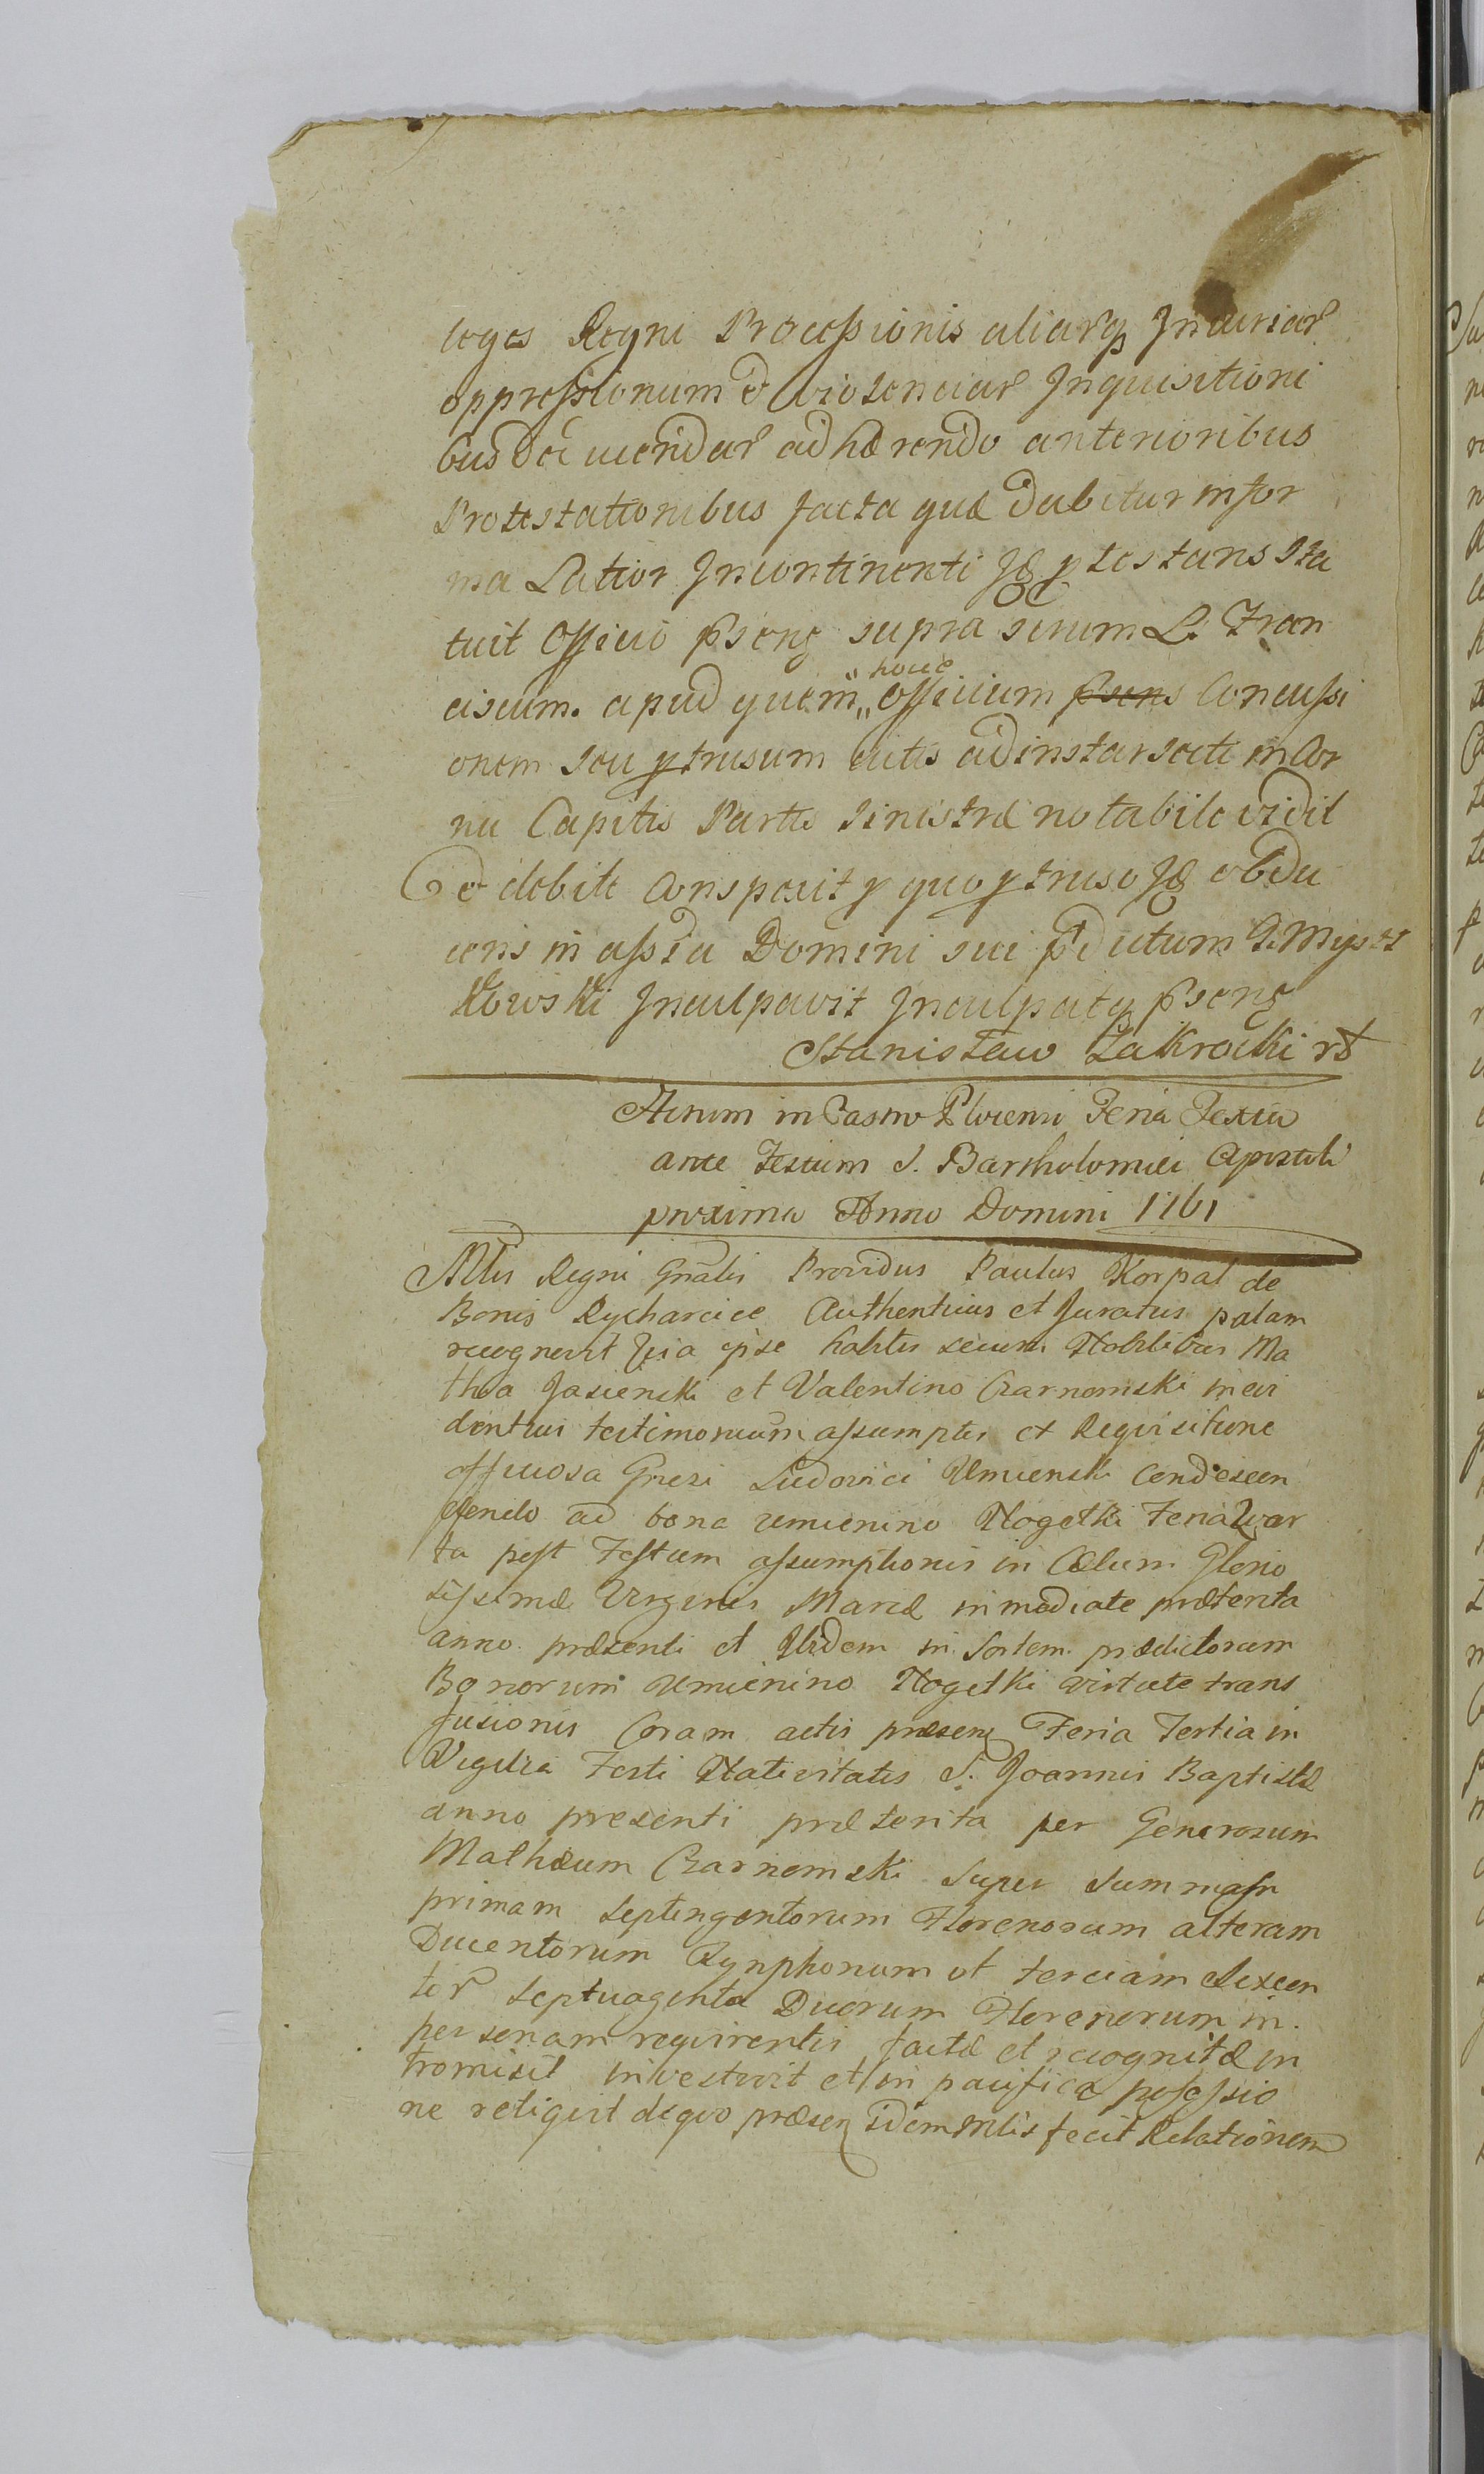 leges Regni Processionis aliarq Injuriar
oppressionum et violenciar Inquisitioni
bus ducendar adhærendo anterioribus
Protestationibus facta quæ dabitur in for
ma Latior Incontinenti ptestans Sta
tuit Officio psens supra scrum L. Fran
ciscum. apud quem Officium psens Concussi
onem seu ptrusum cutis ad instar secti in Cor
nu Capitis Partis sinistræ notabile vidit
et debite Conspexit p quo ptruso obdu
cens in Domini sui pdictum
Kowski Inculpavit Inculpatq psens
Stanisław Zakrocki
Actum in Castro Plocensi Feria Sexta
ante Festum S. Bartholomiei Apostoli
proxima Anno Domini 1761
Mlis Regni Gnalis Providus Paulus Korpal de
Bonis Rycharcice Authenticus et Juratus palam
recognovit qia ipse habitis secum Nobilibus Ma
thæa Jasienski et Valentino Czarnomski in evi
dentius testimonium assumptis et Requisitione
officiosa Gnesi Ludovici Umienski Condescen
dendo ad bona Umienino Nogetki Feria Quar
ta post Festum assumptionis in Cælum Glorio
sissimæ Virginis Mariæ immediate præterita
anno præsenti et Ibidem in Sortem prædictorum
Bonorum Umienino Nogetki virtute trans
fusionis Coram actis præsens Feria Tertia in
Vigilia Festi Nativitatis S. Joannis Baptistæ
anno presenti præterita per Generosum
Mathæum Czarnomski Super Summam
primam Septingentorum Florenorum alteram
Ducentorum Rynphonum et terciam Sexcen
tor Septuaginta Duorum Florenorum in
personam requirentis factæ et recognitæ in
tromisit investivit et in pacifica possessio
ne reliquit de quo præsens idem Mlis fecit Relationem